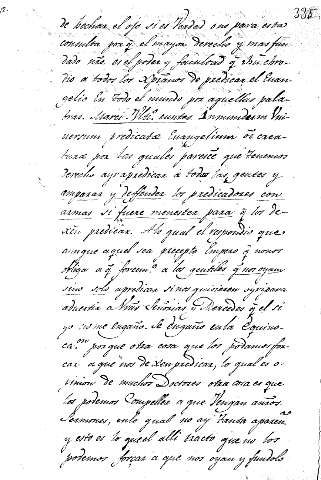 335
de hechar el ojo si es Verdad o no para esta
consulta porq̃ el mayor derecho y mas fun
dado nro. es el poder y facultad q̃ Jsu chris
dio a todos los Xpianos de predicar el Euan
gelio en todo el mundo por aquellas pala
bras. Marci. Ulti. euntes In mundum Vni
uersum predicate Euangelium oi creatu
rae por las quales parece que tenemos
derecho a yr a predicar a todas las gentes y
amparar y deffender los predicadores con
armas si fuere menester para q̃ los de-
xen predicar. A lo qual el respondio que
aunque aquel sea precepto Empero q̃ no nos
obliga a q̃ forcem.ˢ a los gentiles q̃ nos oyan
sino solo a predicar si nos quisieren oyr y para
aduertir a Vrãs Señorias y Mercedes q̃ el si
yo no me engaño se engaño en la Equiuo-
ca.ᵒⁿ porque otra cosa es que los podamos for
çar a que nos dexen predicar, lo qual es o-
pinion de muchos Doctores otra cosa es que
los podemos Compeller a que Vengan a nr̃os
Sermones, en lo qual no ay tanta aparen.ᵃ
y esto es lo que el alli tracto que no los
podemos forçar a que nos oyan y fundolo